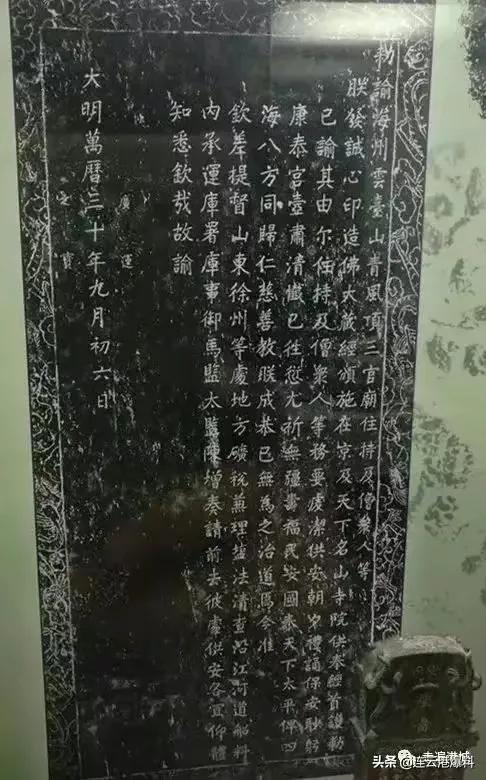 勅諭海州雲臺山青風頂三官廟住持及僧衆人等
朕發誠心印造佛大藏經頒施在京及天下名山寺院供奉經首護勅
已諭其由尔住持及僧衆人等務要虔潔供安朝夕禮誦保安眇躬
康泰宮壼肅清懺已徃愆尤祈無疆壽福民安國泰天下太平俾四
海八方同歸仁慈善教朕成恭已無為之治道焉今准
欽差提督山東徐州等處地方礦稅兼理鹽法清查沿江河道船料
內承運庫署庫事御馬監太監陳增奏請前去彼處供安各宜仰體
知悉欽哉故諭
廣運
之寶
大明萬曆三十年九月初六日
头条 @连云港爆料
走遍港城